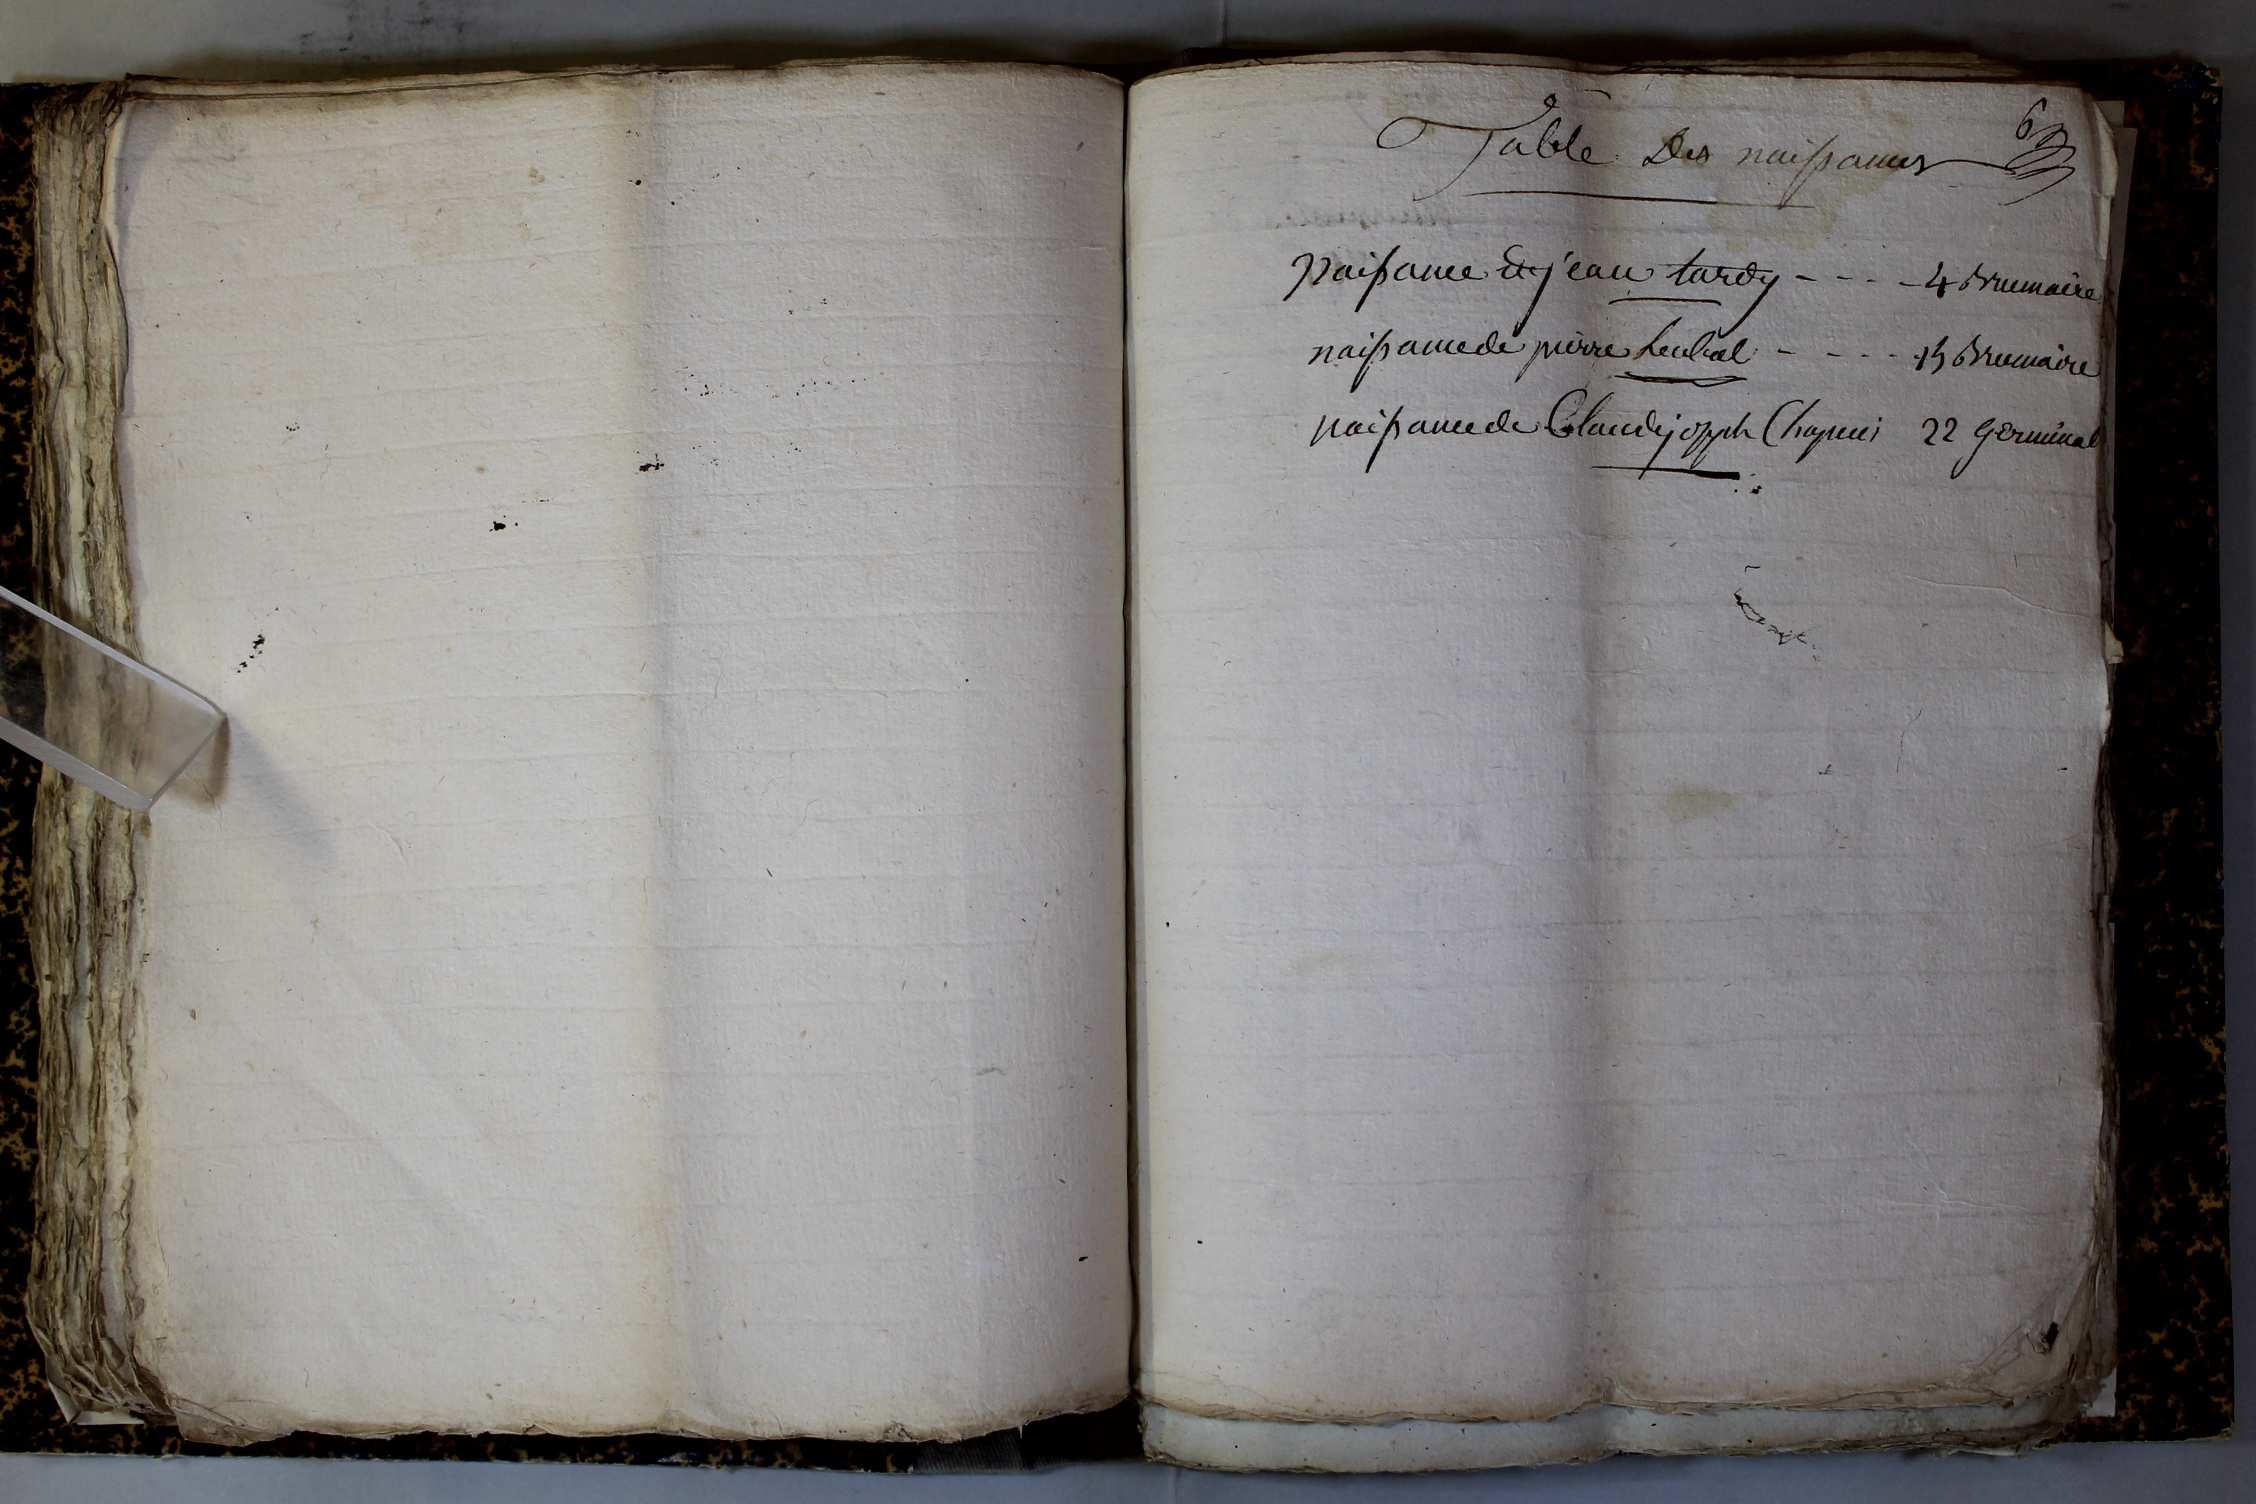 6
Table Des naissances
Naissance de jean tardy - - - - 4 Brumaire
naissance de pierre - - - - 15 Brumaire
naissance de Claude joseph Chapuis 22 Germinal